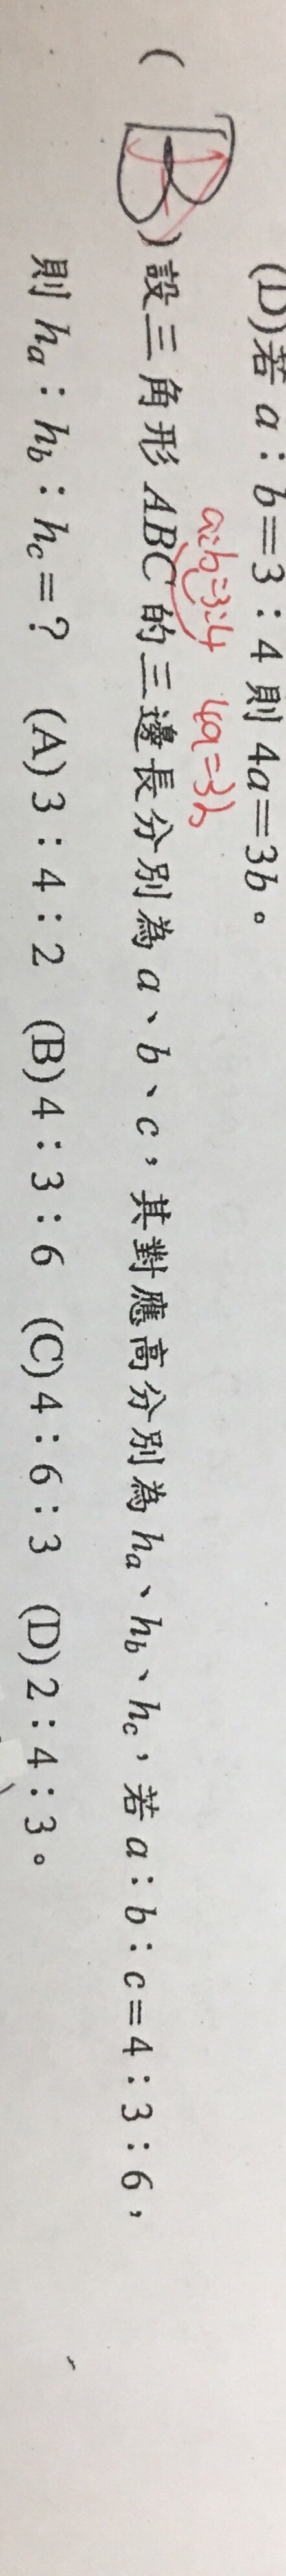 (D)若 a：b＝3：4 則 4a＝3b。
a:b=3:4 4a=3b
( B )設三角形 ABC 的三邊長分別為 a、b、c，其對應高分別為 hₐ、h_b、h_c，若 a：b：c＝4：3：6，
則 hₐ：h_b：h_c＝？ (A)3：4：2 (B)4：3：6 (C)4：6：3 (D)2：4：3。